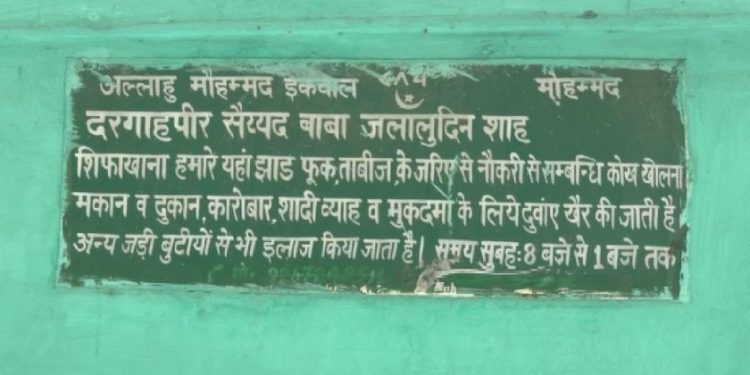 अल्लाहु मौहम्मद इकबाल ७८६ मोहम्मद
दरगाहपीर सैय्यद बाबा जलालुदिन शाह
शिफाखाना हमारे यहां झाड फूक,ताबीज,के जरिए से नौकरी से सम्बन्धि कोख खोलना
मकान व दुकान,कारोबार,शादी व्याह व मुकदमा के लिये दुवांए खैर की जाती है
अन्य जड़ी बुटीयों से भी इलाज किया जाता है। समय सुबह:8 बजे से 1 बजे तक